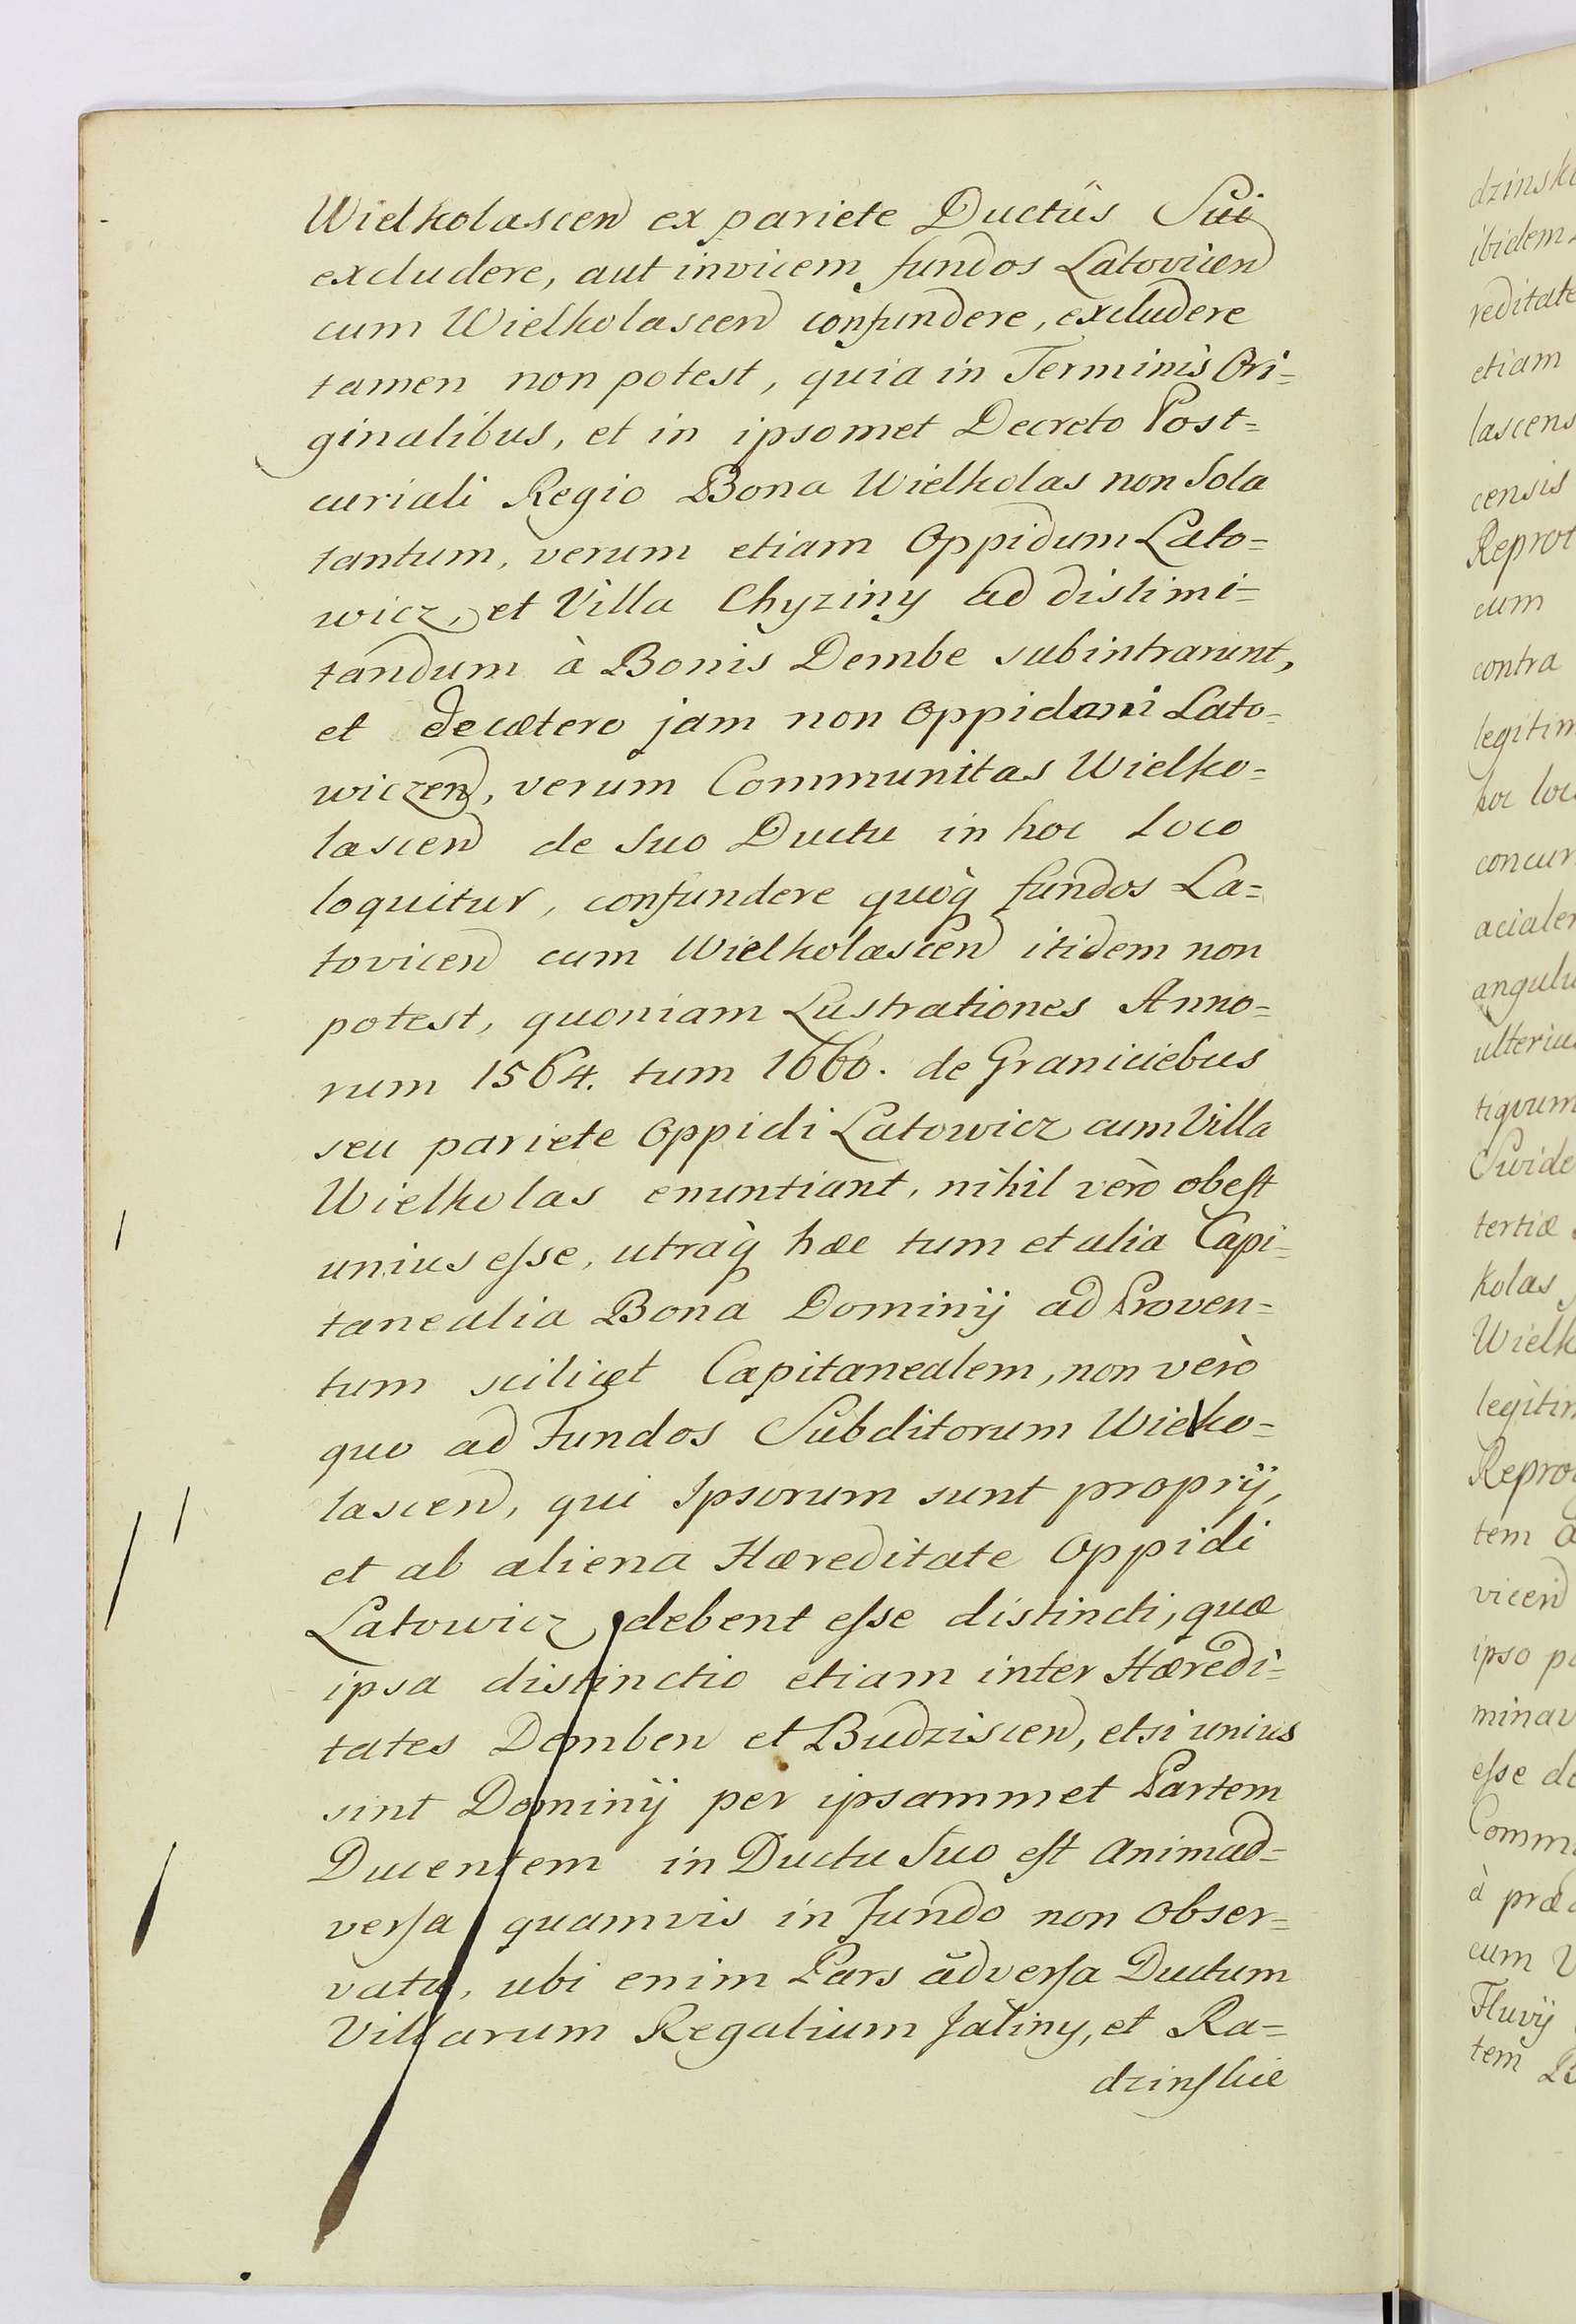 Wielkolascen ex pariete Ductûs Sui
excludere, aut invicem fundos Latovicen
cum Wielkolascen confundere, excludere
tamen non potest, quia in Terminis Ori=
ginalibus, et in ipsomet Decreto Post=
curiali Regio Bona Wielkolas non Sola
tantum, verum etiam Oppidum Lato=
wicz, et Villa Chyziny ad dislimi=
tandum à Bonis Dembe subintrarunt,
et de cætero jam non Oppidani Lato=
wiczen, verum Communitas Wielko=
lascen de Suo Ductu in hoc Loco
loquitur, confundere quòq fundos La=
tovicen cum Wielkolascen itidem non
potest, quoniam Lustrationes Anno=
rum 1564. tum 1660. de Graniciebus
seu pariete Oppidi Latowicz cum Villa
Wielkolas enuntiant, nihil verò obest
unius esse, utraq̀ hæc tum et alia Capi=
tanealia Bona Dominij ad Proven=
tum scilicet Capitanealem, non verò
quo ad Fundos Subditorum Wielko=
lascen, qui Ipsorum sunt proprij,
et ab aliena Hæreditate Oppidi
Latowicz debent esse distincti, quæ
ipsa distinctio etiam inter Hæredi=
tates Demben et Budziscen, etsi unius
sint Dominij per ipsammet Partem
Ducentem in Ductu Suo est animad=
versa quamvis in fundo non obser=
vata, ubi enim Pars adversa Ductum
Villarum Regalium Jaliny, et Ra=
dzinskie
dzinsk
ibidem
reditate
etiam
lascens
censis
Repro
cum
contra
legitim
hoc loc
concur
acialem
angulu
ulterius
tiquum
Swide
tertiæ
kolas
Wielk
legitim
Repro
tem
vicen
ipso p
minav
esse de
Comm
à præd
cum
Fluvij
tem